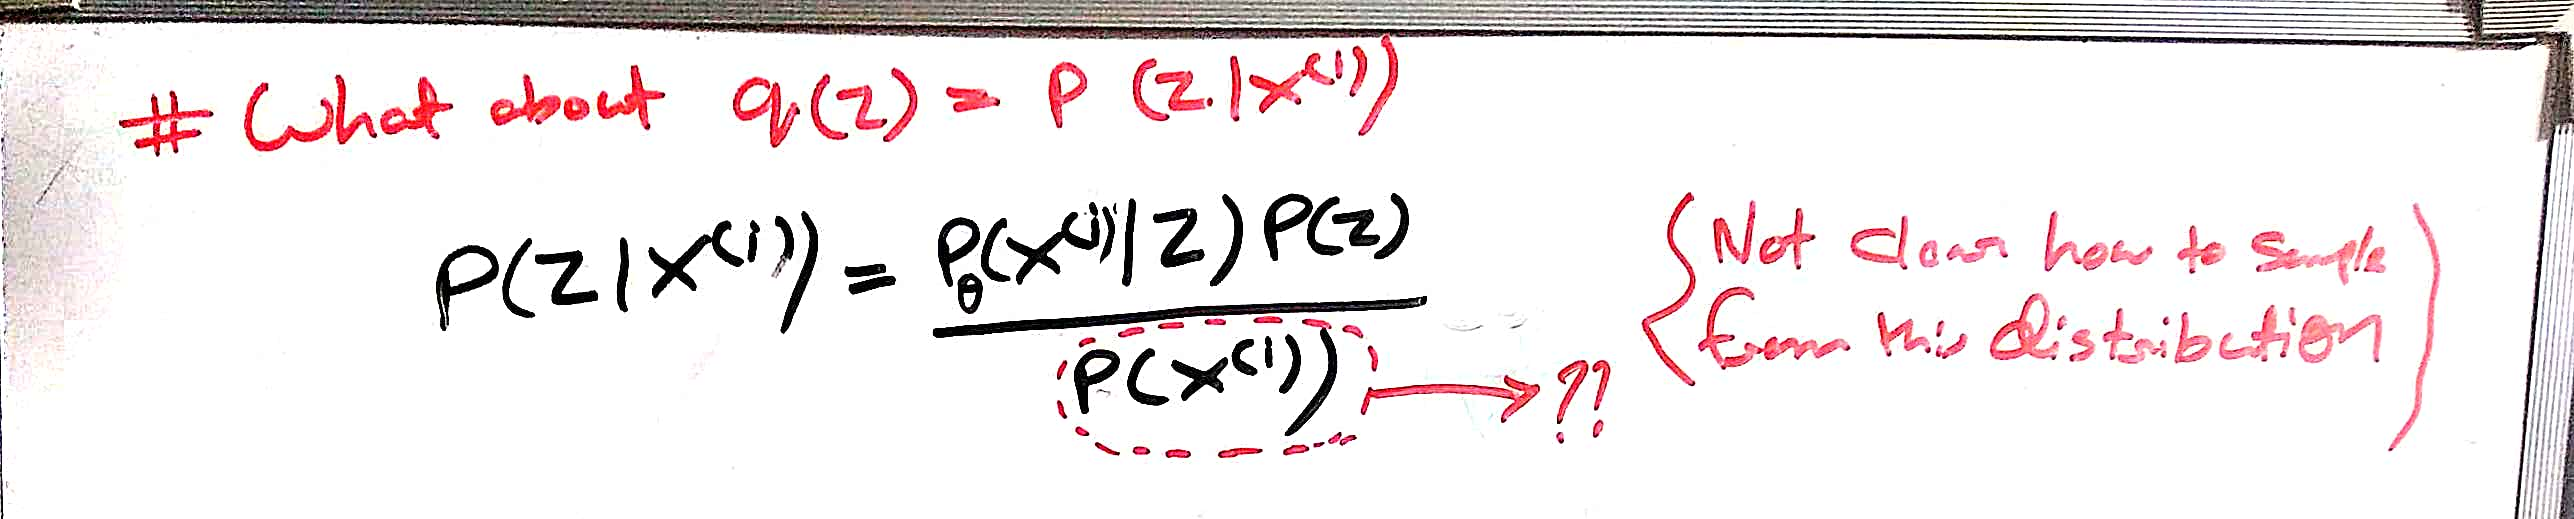 # What about q(z) = P(z|x⁽ⁱ⁾)
P(z|x⁽ⁱ⁾) = P_θ(x⁽ⁱ⁾|z) P(z)
P(x⁽ⁱ⁾) → ??
{Not clear how to sample
from this distribution}